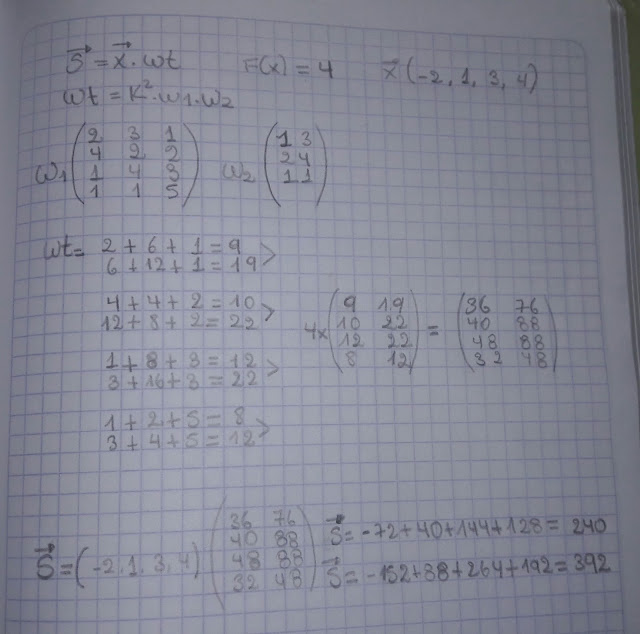 S⃗ = x⃗ · wt F(x) = 4 x⃗ (-2, 1, 3, 4)
wt = K² · w1 · w2
w1 (2 3 1
4 2 2
1 4 3
1 1 5)
w2 (1 3
2 4
1 1)
wt= 2 + 6 + 1 = 9 >
6 + 12 + 1 = 19
4 + 4 + 2 = 10 >
12 + 8 + 2 = 22
1 + 8 + 3 = 12 >
3 + 16 + 3 = 22
1 + 2 + 5 = 8 >
3 + 4 + 5 = 12
4x (9 19
10 22
12 22
8 12)
= (36 76
40 88
48 88
32 48)
S⃗ = (-2, 1, 3, 4)
(36 76
40 88
48 88
32 48)
S⃗ = -72+40+144+128 = 240
S⃗ = -152+88+264+192 = 392